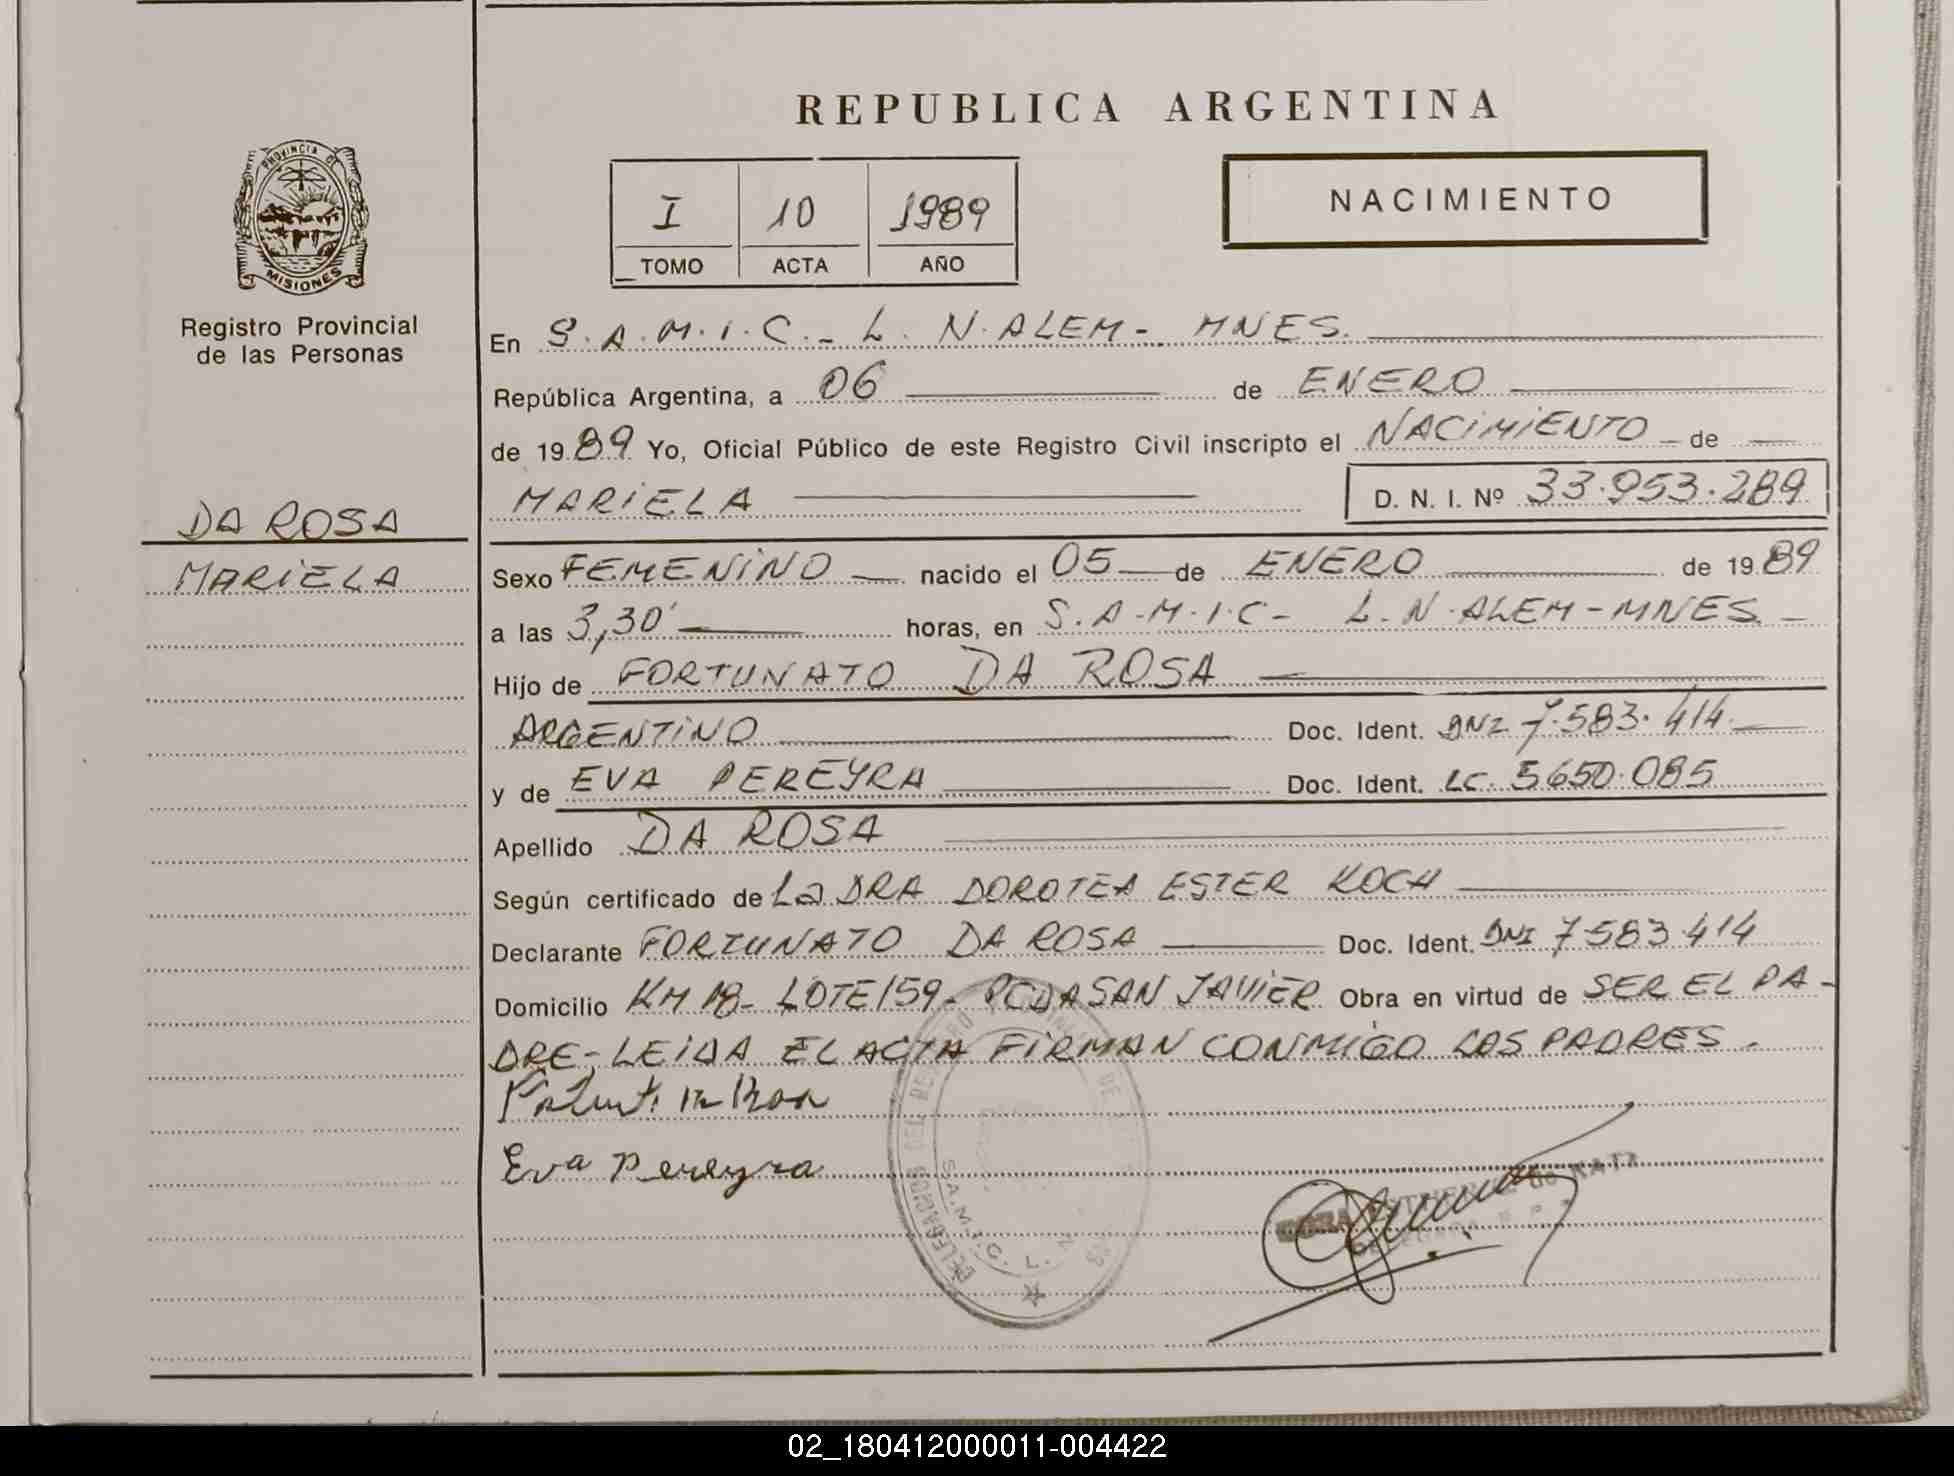 REPUBLICA ARGENTINA
PROVINCIA DE
MISIONES
Registro Provincial
de las Personas
I 10 1989
TOMO ACTA AÑO
NACIMIENTO
DA ROSA
MARIELA
En S.A.M.I.C.- L. N. ALEM- MNES.
República Argentina, a 06 de ENERO
de 1989 Yo, Oficial Público de este Registro Civil inscripto el NACIMIENTO - de
MARIELA D. N. I. Nº 33.953.289
Sexo FEMENINO nacido el 05 de ENERO de 1989
a las 3,30' horas, en S.A.M.I.C- L. N. ALEM-MNES. -
Hijo de FORTUNATO DA ROSA
ARGENTINO Doc. Ident. DNI 7.583.414
y de EVA PEREYRA Doc. Ident. LC. 5650.085
Apellido DA ROSA
Según certificado de La DRA DOROTEA ESTER KOCH
Declarante FORTUNATO DA ROSA Doc. Ident. DNI 7.583.414
Domicilio KM 18- LOTE 159- PCDA SAN JAVIER Obra en virtud de SER EL PA-
DRE-, LEIDA EL ACTA FIRMAN CONMIGO LOS PADRES.
Eva Pereyra
DELEGACION DEL REGISTRO
S.A.M.I.C. L. N.
02_180412000011-004422